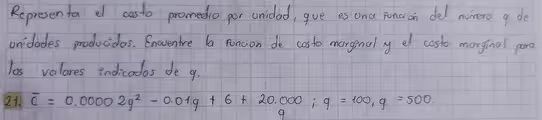 Representa el costo promedio por unidad, que es una función del número q de
unidades producidas. Encuentre la función de costo marginal y el costo marginal para
los valores indicados de q.
21. c̄ = 0.00002q² - 0.01q + 6 + 20.000/q ; q = 100, q = 500